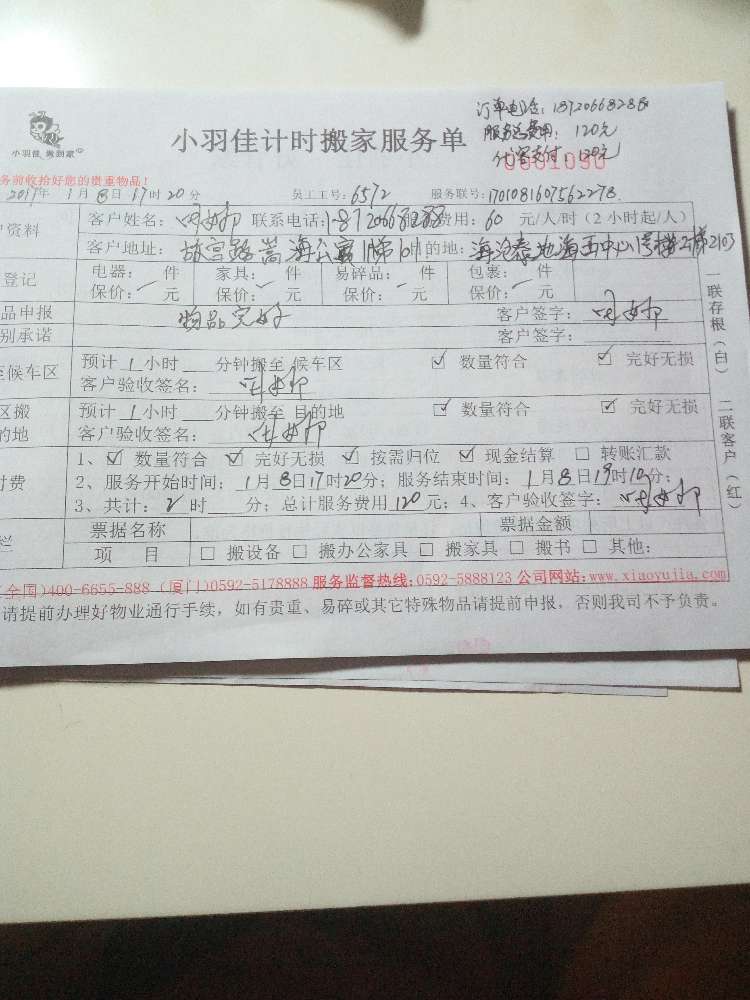 订单电话：18720668286
服务总费用：120元
代客支付：120元
小羽佳 搬到家
小羽佳计时搬家服务单
0661090
务前收拾好您的贵重物品！
2017年 1月8日17时20分 员工工号：6572 服务联号：1701081607562278
户资料 客户姓名： 联系电话： 费用：60 元/人/时（2小时起/人）
客户地址：故宫路嵩海公寓1梯 目的地：海沧泰地海西中心1号楼2梯2103
登记 电器： 件 家具： 件 易碎品： 件 包裹： 件
保价： 元 保价： 元 保价： 元 保价： 元
品申报 物品完好 客户签字：
别承诺 客户签字：
至候车区 预计1小时 分钟搬至 候车区 ☑ 数量符合 ☑ 完好无损
客户验收签名：
区搬 预计1小时 分钟搬至 目的地 ☑ 数量符合 ☑ 完好无损
的地 客户验收签名：
付费 1、☑ 数量符合 ☑ 完好无损 ☑ 按需归位 ☑ 现金结算 □ 转账汇款
2、服务开始时间：1月8日17时20分；服务结束时间：1月8日19时10分；
3、共计：2时 分；总计服务费用120元；4、客户验收签字：
栏 票据名称 票据金额
项 目 □ 搬设备 □ 搬办公家具 □ 搬家具 □ 搬书 □ 其他：
(全国)400-6655-888 (厦门)0592-5178888 服务监督热线：0592-5888123 公司网站：www.xiaoyujia.com
请提前办理好物业通行手续，如有贵重、易碎或其它特殊物品请提前申报，否则我司不予负责。
一联存根（白） 二联客户（红）